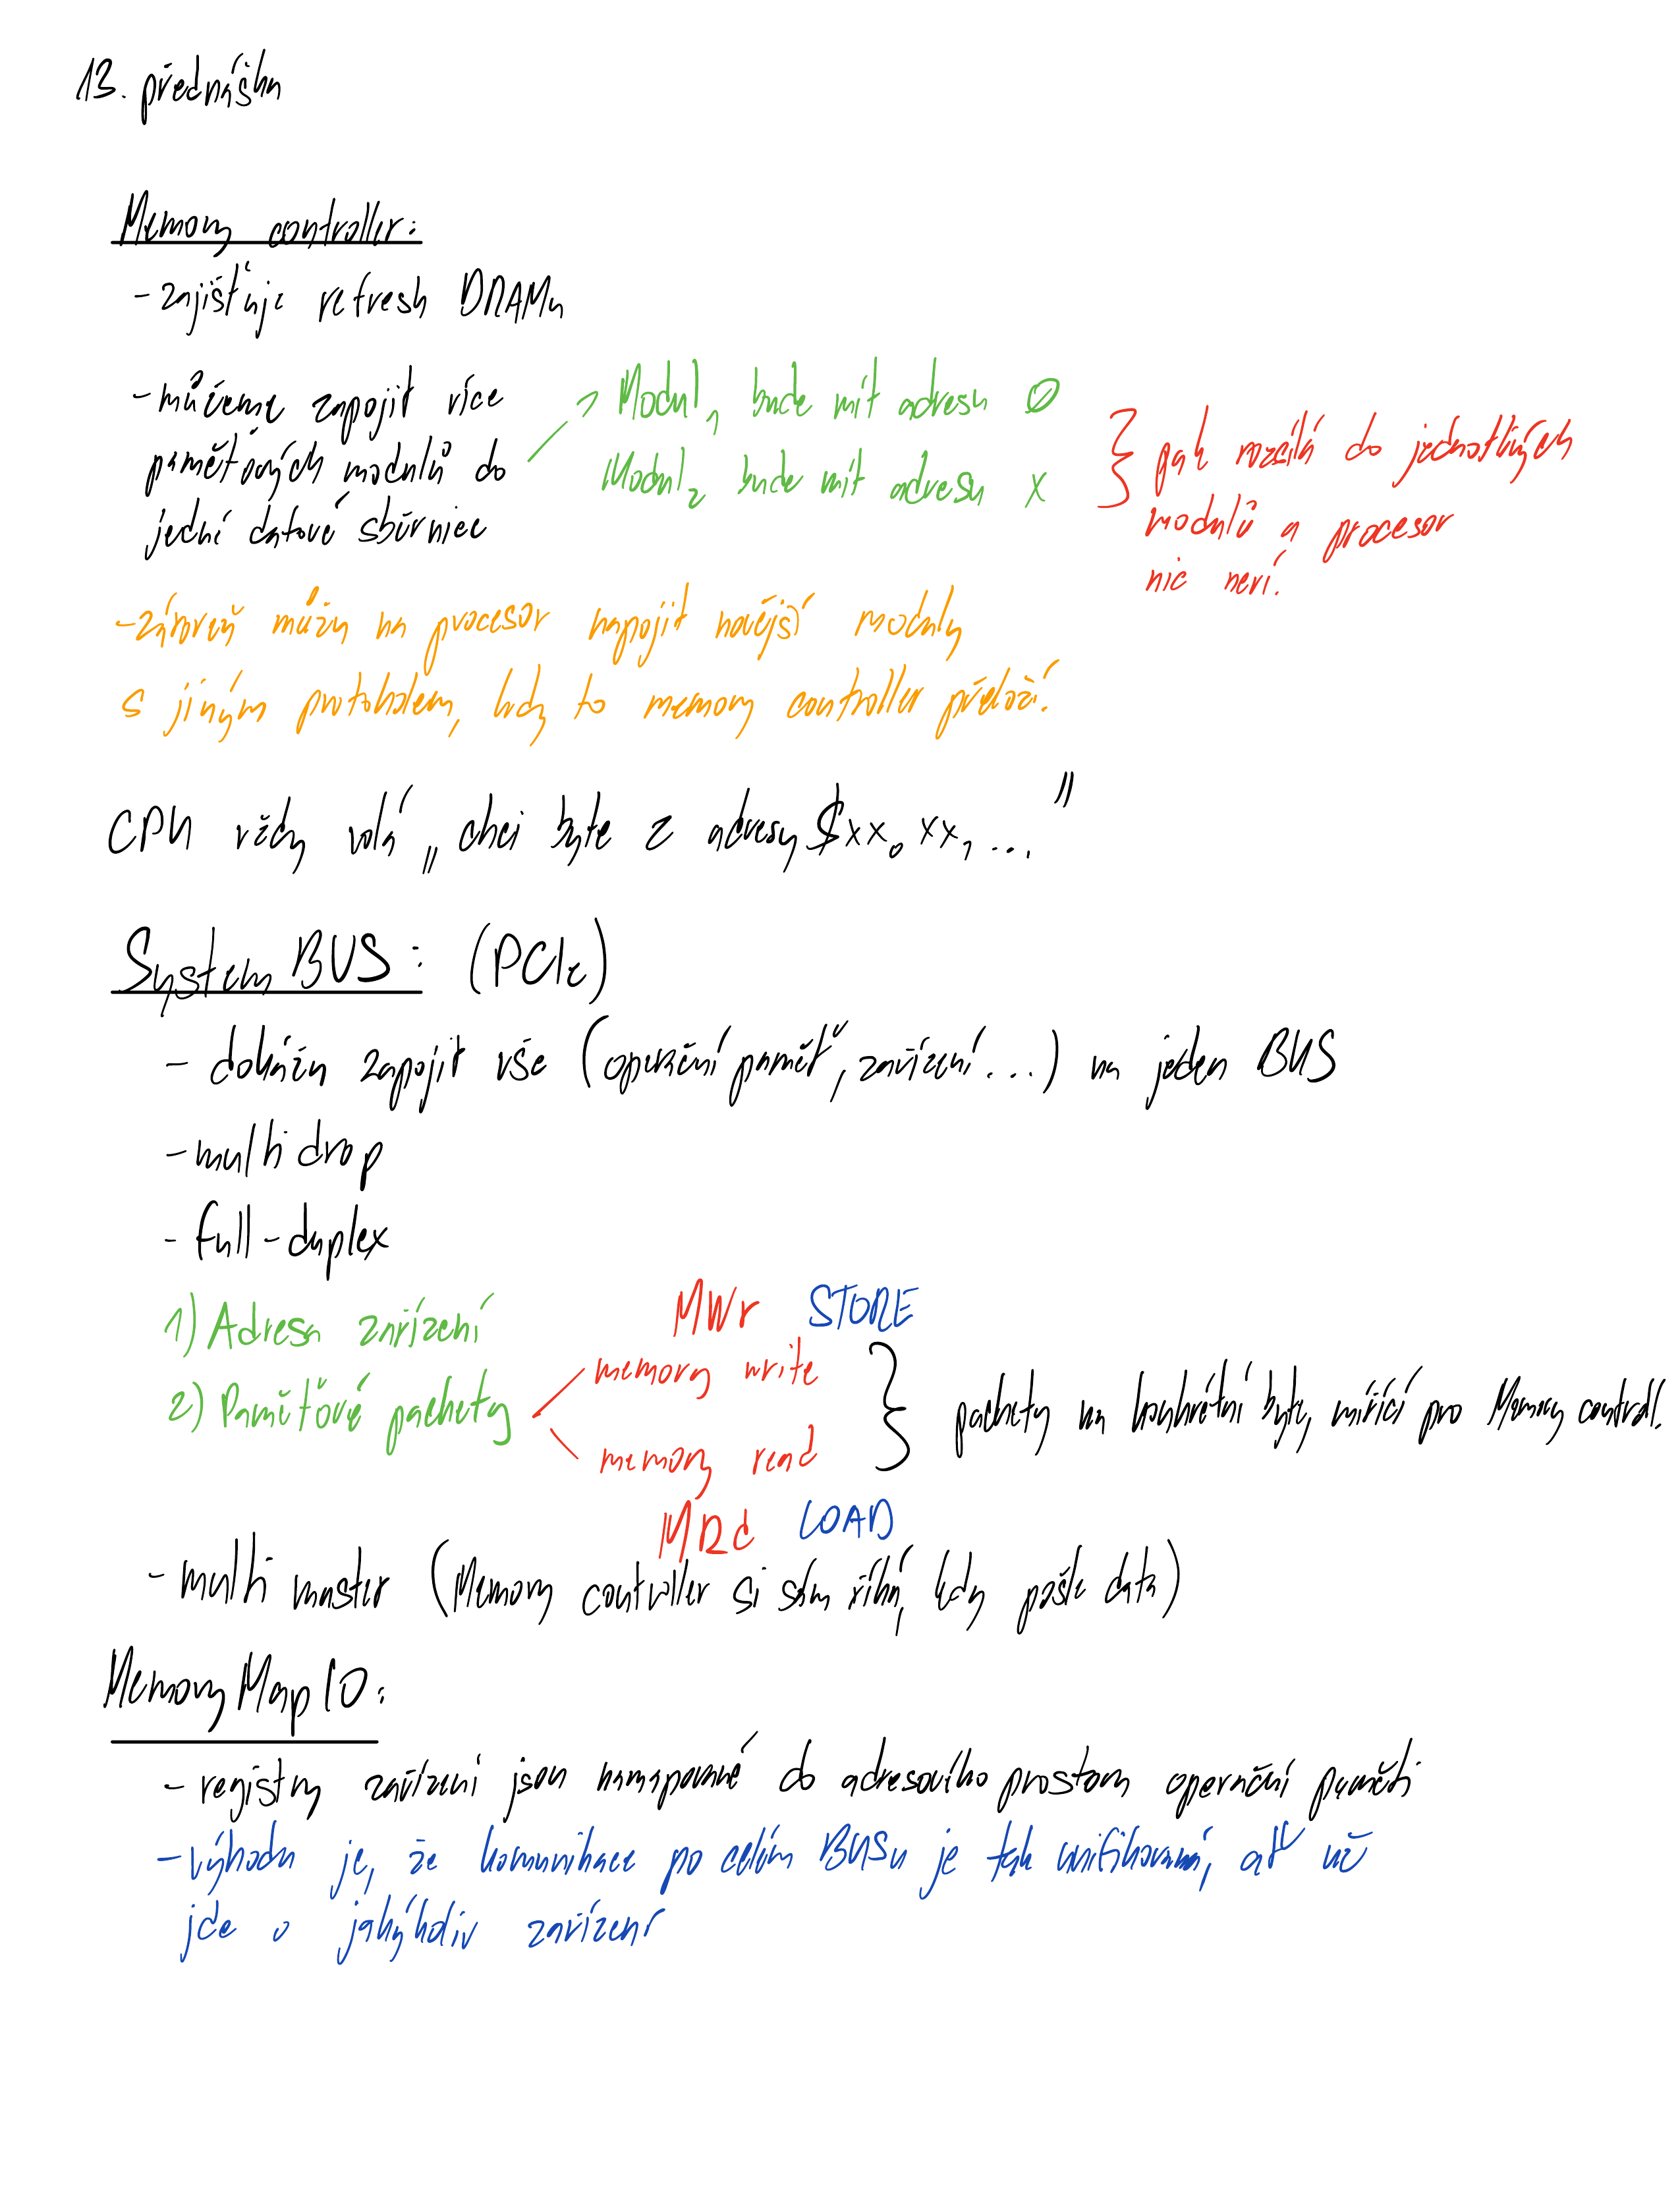 13. přednáška
Memory controller:
- zajišťuje refresh DRAMu
- můžeme zapojit více
paměťových modulů do
jedné datové sběrnice
Modul₁ bude mít adresu 0
Modul₂ bude mít adresu x
pak rozsílá do jednotlivých
modulů a procesor
nic neví.
- zároveň můžu na procesor napojit novější moduly
s jiným protokolem, kdy to memory controller přeloží.
CPU vždy volá „chci byte z adresy $xx₀ xx₁ ..."
System BUS: (PCIe)
- dokážu zapojit vše (operační paměť, zařízení...) na jeden BUS
- multi drop
- full-duplex
1) Adresa zařízení
MWr STORE
2) Paměťové packety
memory write
memory read
packety na konkrétní byte, mířící pro Memory controll.
MRd LOAD
- multi master (Memory controller si sám říká, kdy pošle data)
Memory Map IO:
- registry zařízení jsou namapované do adresového prostoru operační paměti
- výhodu je, že komunikace po celém BUSu je tak unifikovaná, ať už
jde o jakýkoliv zařízení